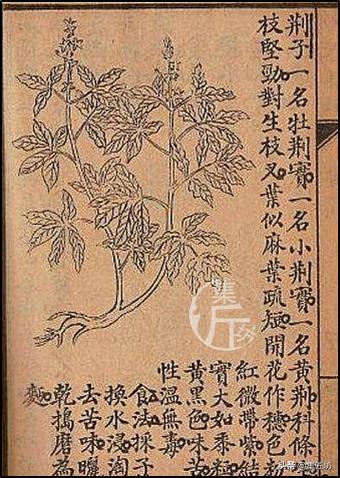 荆子一名牡荆實一名小荆實一名黄荆科條
枝堅勁對生枝叉葉似麻葉疏短開花作穗色粉
紅微帶紫結
實大如黍粒
黄黑色味苦
性温無毒
食法採子
換水浸淘
去苦味曬
乾搗磨為
麵
集
匠
头条@集匠坊